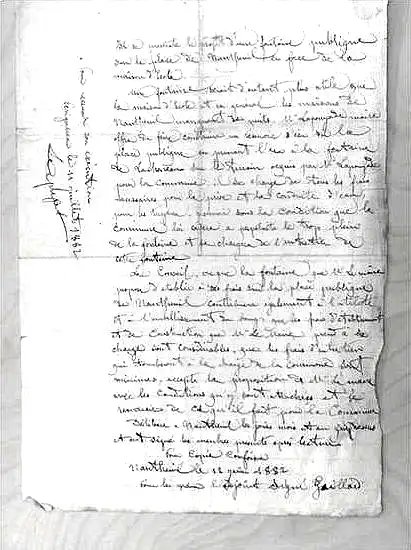 de a ensuite le projet d'une fontaine publique
sur la place de Nantheuil en face de la
maison d'école.
Une fontaine serait d'autant plus utile que
la maison d'école et en général les maisons de
Nantheuil manquent de puits. Mr le maire
offre de faire construire un réservoir d'eau sur la
place publique en prenant l'eau à la fontaine
de sur le terrain acquis par Mr
pour la commune, il se charge de tous les frais
nécessaires pour la prise et la conduite d'eau
pour les tuyaux, réservoir sous la condition que la
commune lui cédera à perpétuité le trop plein
de la fontaine et se chargera de l'entretien de
cette fontaine
Le Conseil, vu que la fontaine que Mr le maire
propose d'établir à ses frais sur la place publique
de Nantheuil contribuera également à l'utilité
et à l'embellissement du bourg que les frais d'établissement
et de construction que Mr le Maire prend à sa
charge sont considérables, que les frais d'entretien
qui tomberont à la charge de la commune sont
minimes, accepte la proposition de Mr le maire
avec les conditions qu'y sont attachées et le
remercie de ce qu'il fait pour la Commune
Délibéré à Nantheuil les jour mois et an que dessus
et ont signé les membres présents après lecture
Pour Copie Conforme
Nantheuil le 12 1882
Pour le maire l'adjoint Signé Gaillard
le 11 juillet 1882